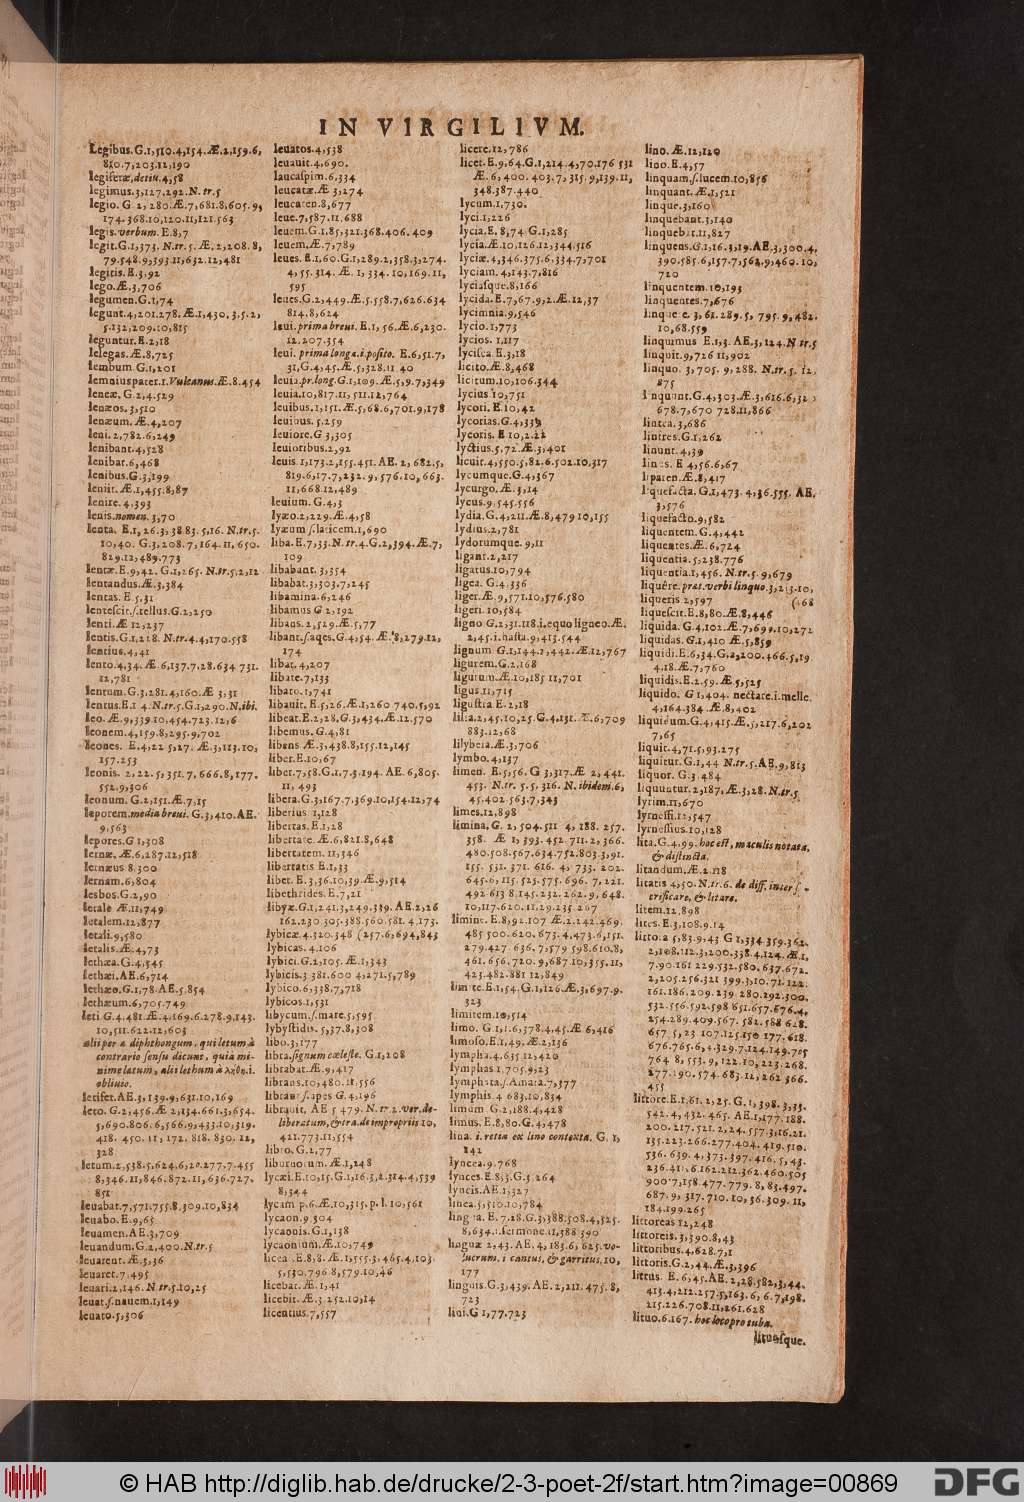 IN VIRGILIVM.
Legibus.G.1,510.4,154.Æ.2,159.6,
810.7,203.12,190
legiferæ,detiu.4,58
legimus.3,127.292.N.tr.5
legio.G 2,280.Æ.7,681.8,605.9,
174.368.10,120.11,121.563
legis.verbum.E.8,7
legit.G.1,373. N.tr.5.Æ.2,208.8,
79.548.9,393.11,632.12,481
legitis.E.3,92
lego.Æ.3,706
legumen.G.1,74
legunt.4,201.278.Æ.1,430.3,5.2,
5.132,209.10,815
leguntur.E.2,18
lelegas.Æ.8,725
lembum G.1,201
lemniuspater.i.Vulcanus.Æ.8.454
leneæ. G.2,4.529
lenæos.3,510
lenæum.Æ.4,207
leni.2,782.6,249
lenibant.4,528
lenibat.6,468
lenibus.G.3,199
leniit.Æ.1,455.8,87
lenire.4,393
lenis.nomen.3,70
lentæ.E.9,42.G.1,265.N.tr.5.2,12
lentandus.Æ.3,384
lentas.E 5,31
lentescit.s.tellus.G.2,250
lenti.Æ 12,237
lentis.G.1,228.N.tr.4.4,170.558
lentius.4,41
lento.4,34.Æ.6,137.7,28.634 731.
12,781
lentum.G.3.281.4,160.Æ 3,31
lentus.E.1 4.N.tr.5.G.1,290.N.ibi.
leo.Æ.9,339.10,454.723.12,6
leonem.4,159.8,295.9,702
leones. E.4,22 5,27. Æ.3,113.10,
157.253
leonis.2,22.5,351.7,666.8,177.
552.9,306
leonum.G.2,151.Æ.7,15
leporem.media breui.G.3,410.AE.
9,563
lepores.G 1,308
lernæ.Æ.6,287.12,518
lernæus 8.300
lernam.6,804
lesbos.G.2,90
letale Æ.11,749
letalem.12,877
letali.9,580
letalis.Æ.4,73
lethæa.G.4,545
lethæi.AE.6,714
lethæo.G.1,78.AE.5,854
lethæum.6,705.749
leti.G.4,481.Æ.4,169.6.278.9,143.
10,511.622.12,603
alij per æ diphthongum, qui letum à
contrario sensu dicunt, quia mi-
nime lætum, alij lethum à λήθη.i.
obliuio.
letifer.AE.3,139.9,631.10,169
leto.G.2,456.Æ 2,134.661.3,654.
5,690.806.6,566.9,433.10,319.
418. 450. 11, 172. 818. 830. 12,
328
letum.2,538.5,624.6,20.277.7,455
8,346.11,846.872.11,636.727.
851
leuabat.7,571.755.8,309.10,834
leuabo.E.9,65
leuamen.AE.3,709
leuandum.G.2,400.N.tr.5
leuarent.Æ.5,36
leuaret.7,495
leuari.2,146. N tr.5.10,25
leuat.s.nauem.1,149
leuato.5,306
leuatos.4,538
leuauit.4,690.
leucaspim.6,334
leucatæ.Æ 3,274
leucaten.8,677
leue.7,587.11.688
leuem.G.1,85,321.368.406.409
leuem.Æ.7,789
leues.E.1,60.G.1,289.2,358.3,274.
4,55.314. Æ.1, 334.10,169.11,
595
leues.G.2,449.Æ.5.558.7,626.634
814.8,624
leui.prima breui.E.1,56.Æ.6,230.
12.207.354
leui. prima longa.i.posito. E.6,51.7,
31,G.4,45.Æ.5,328.11.40
leuia.pr.long.G.1,109.Æ.5,9.7,349
leuia.10,817.11,511.12,764
leuibus.1,151.Æ.5,68.6,701.9,178
leuibus.5.259
leuiore.G 3,305
leuioribus.2,92
leuis.1,173.2,155.451. AE.2,682.5,
819.6,17.7,232.9,576.10,663.
11,668.12,489
leuium.G.4,3
lyæo.2,229.Æ.4,58
lyæum s.laticem.1,690
liba.E.7,33.N.tr.4.G.2,394.Æ.7,
109
libabant.3,354
libabat.3,303.7,245
libamina.6,246
libamus G 2,192
libans.2,529.Æ.5,77
libant.s.apes.G.4,54.Æ.8,279.12,
174
libat.4,207
libate.7,133
libato.1,741
libauit.E.5,26.Æ.1,260 740.5,92
libeat.E.2,28.G.3,434.Æ.12.570
libemus.G.4,81
libens Æ.3,438.8,155.12,145
liber.E.10,67
liber.7,58.G.1,7.3.194. AE.6,805.
11, 493
libera.G.3,167.7,369.10,154.12,74
liberius 1,128
libertas.E.1,28
libertate.Æ.6,821.8,648
libertatem.11,346
libertatis E.1,33
libet.E.3,36.10,39.Æ.9,514
libethrides.E.7,21
libyæ.G.1,241.3,249.339.AE.2,26
162.230.305.388.560.581.4,173.
lybicæ.4.320.348 (257.6,694,843
lybicas.4,106
lybici.G.2,105.Æ.1,343
lybicis.3 381.600 4,271.5,789
lybico.6,338.7,718
lybicos.1,531
libycum.s.mare.5,595
lybystidis.5,37.8,308
libo.3,177
libra.signum cæleste. G.1,208
librabat.Æ.9,417
librans.10,480.11.556
librant s.apes G.4,196
librauit. AE 5 479. N.tr.2.ver.de-
liberatum, & tra.de impropriis 10,
421.773.11,554
libro.G.2,77
liburnorum.Æ.1,248
lycæi.E.10,15.G.1,16.3,2.314.4,539
8,344
lycam p.6.Æ.10,315.p.l.10,561
lycaon.9 304
lycaonis.G.1,138
lycaonium.Æ.10,749
licea.E.8,8.Æ.1,555.3,465.4,103.
5,530.796.8,579.10,46
licebat.Æ.1,41
licebit.Æ.3 252.10,14
licentius.7,557
licere.12,786
licet.E.9,64.G.1,214.4,70.176 531
Æ.6,400.403.7,315.9,139.11,
348.387.440
lycum.1,730.
lyci.1,226
lycia.E.8,74 G.1,285
lycia.Æ.10,126.12,344.516
lyciæ.4,346.375.6.334.7,701
lyciam.4,143.7,816
lyciasque.8,166
lycida.E.7,67.9,2.Æ.12,37
lycimnia.9,546
lycio.1,773
lycios.1,117
lycisca.E.3,18
licito.Æ.8,468
licitum.10,106.344
lycius 10,751
lycori.E.10,42
lycorias.G.4,339
lycoris.E 10,2.22
lyctius.5,72.Æ.3,401
licuit.4,550.5,82.6.502.10,317
lycumque.G.4,367
lycurgo.Æ.3,14
lycus.9,545.556
lydia.G.4,211.Æ.8,479 10,155
lydius.2,781
lydorumque.9,11
ligant.2,217
ligatus.10,794
ligea. G.4 336
liger.Æ.9,571.10,576.580
ligeri.10,584
ligno G.2,31.118.i.equo ligneo.Æ.
2,45.i.hasta.9,413.544
lignum G.1,144.2,442.Æ.12,767
ligurem.G.2,168
ligurum.Æ.10,185 11,701
ligus.11,715
ligustra E.2,18
lilia.2,45.10,25.G.4,131.Æ.6,709
883.12,68
lilybeia.Æ.3,706
lymbo.4,137
limen. E.5,56. G 3,317.Æ 2,441.
453. N.tr.5.5,316. N.ibidem.6,
45.402.563.7,343
limes.12,898
limina. G. 2, 504.511 4, 188. 257.
358. Æ 1, 393. 452. 711. 2, 366.
480.508.567.634.752.803.3,91.
155. 531. 371. 616. 4, 733. 202.
645.6,115.525.575.696.7,221.
492 613 8.145.232.262.9,648.
10,117.620.11,29.235.267
limine. E.8,92.107 Æ.2,242.469.
485 500.620.673.4,473.6,151.
279.427 636.7,579 598.610.8,
461.656.720.9,687.10,355.11,
423.482.881 12,849
limite.E.1,54.G.1,126.Æ.3,697.9.
323
limitem.10,514
limo. G.1,1.6,378.4,45.Æ 6,416
limoso.E.1,49.Æ.2,136
lympha.4,635.12,420
lymphas 1,705.9,23
lymphata.s.Amata.7,377
lymphis.4 683.10,834
limum G.2,188.4,428
limus.E.8,80.G.4,478
lina. i. retia ex lino contexta. G. 1,
142
lyncea.9.768
lynces.E.8,3.G.3.264
lyncis.AE.1,327
linea.5,510.10,784
lingua.E.7.28.G.3,388.508.4,525.
8,634.i.sermone.11,588.390
linguæ 2,43.AE.4,183.6,625.vo-
lucrum.i cantus, & garritus.10,
177
linguis.G.3,439.AE.2,211.475.8,
723
lini.G 1,77.723
lino. Æ.12,120
lino.E.4,57
linquam.s.lucem.10,856
linquant.Æ.1,521
linque.3,160
linquebant.3,140
linquebat.11,827
linquens.G.1,16.3,19.AE.3,300.4,
390.585.6,157.7,562.9,460.10,
720
linquentem.10,193
linquentes.7,676
linquere.3,61.289.5, 795.9,482.
10,68.559
linquimus E.1,3. AE.3,124.N tr.5
linquit.9,726 11,902
linquo. 3, 705. 9, 288. N.tr.5. 12,
875
linquunt.G.4,303.Æ.3,616.6,32
678.7,670 728.11,866
lintea.3,686
lintres.G.1,262
linunt.4,39
linus.E 4,56.6,67
liparen.Æ.8,417
liquefacta.G.1,473.4,36.555. AE.
3,576
liquefacto.9,582
liquentem.G.4,442
liquentes.Æ.6,724
liquentia.5,238.776
liquentia.1,456.N.tr.5.9,679
liquêre.præt.verbi linquo.3,213.10,
liqueris 2,597 (168
liquescit.E.8,80.Æ.8,446
liquida.G.4,102.Æ.7,699.10,272
liquidas.G.1,410 Æ.5,859
liquidi.E.6,34.G.2,200.466.5,19
4.18.Æ.7,760
liquidis.E.2.59.Æ.5,525
liquido. G 1,404. nectare.i.melle.
4,164.384.Æ.8,402
liquidum.G.4,415.Æ.5,217.6,202
7,65
liquit.4,71.5,93.275
liquitur.G.1,44 N.tr.5.AE.9,813
liquor. G.3 484
liquuntur.2,187.Æ.3,28.N.tr.5
lyrim.11,670
lyrnessi.12,547
lyrnessius.10,128
lita.G.4.99. hoc est, maculis notata,
& distincta.
litandum.Æ.2.118
litatis 4,50.N.tr.6. de diff. inter s-
crificare, & litare.
litem.12.898
lites.E.3,108.9.14
littora 5,83.9,43 G 1,334.359.362.
2,108.112.3,200.338.4.124.Æ.1,
7.90.161 229.532.580.637.672.
2,205.256.321 399.3,10.71.122.
161.186.209.239 280.292.300.
532.556.592.598 651.657.676.4,
254.289.409.567. 582.588 628.
657 5,23 107.125.150 177.618.
676.765.6,4.329.7.124.149.705
764 8,553.9,122.10,223.268.
277.190.574.683.12,262 366.
455
littore.E.1,61.2,25.G.1,398.3,33.
542.4,432.465.AE.1,177.188.
200.217.521.2,24.557.3,16.21.
135.223.266.277.404.419.510.
536.639.4,373.397.416.5,43.
236.411.6,162.212.362.460.505
900 7,158 477.779.8,83.497.
687.9,317.710.10,36.309.11,
184.199.265
littoreas 12,248
littoreis.3,390.8,43
littoribus.4,628.7,1
littoris.G.2,44.Æ.3,396
littus. E.6,45.AE.2,28.582.3,44.
413.4,212.257.5,163.6,6.7,198.
215.226.708.11,261.628
lituo.6,167. hoc loco pro tuba.
lituosque.
© HAB http://diglib.hab.de/drucke/2-3-poet-2f/start.htm?image=00869
DFG